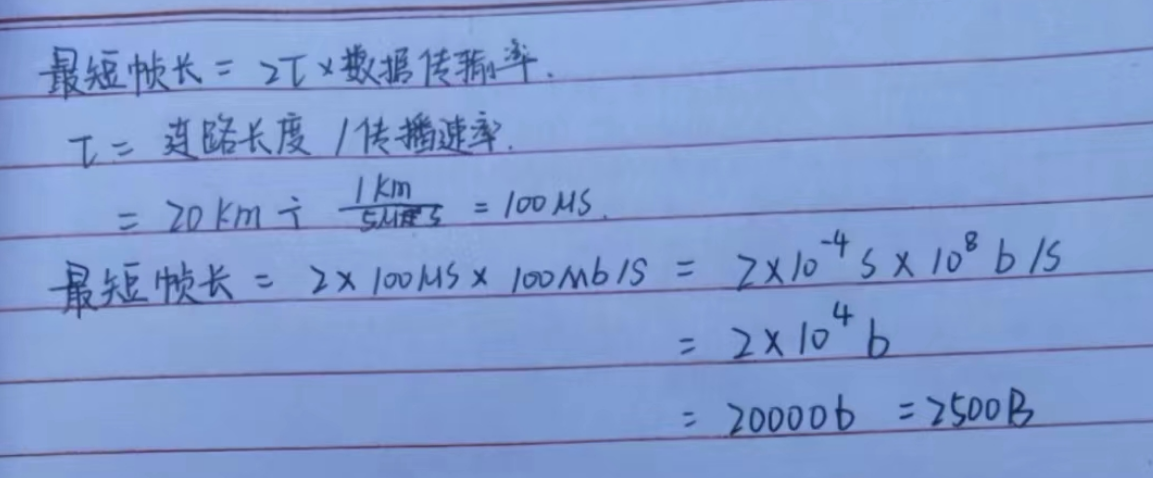 最短帧长 = 2τ × 数据传输率.
τ = 链路长度 / 传播速率.
= 20 km ÷ 1 km / 5μs = 100 μs.
最短帧长 = 2 × 100μs × 100Mb/s = 2×10⁻⁴ s × 10⁸ b/s
= 2×10⁴ b
= 20000b = 2500B